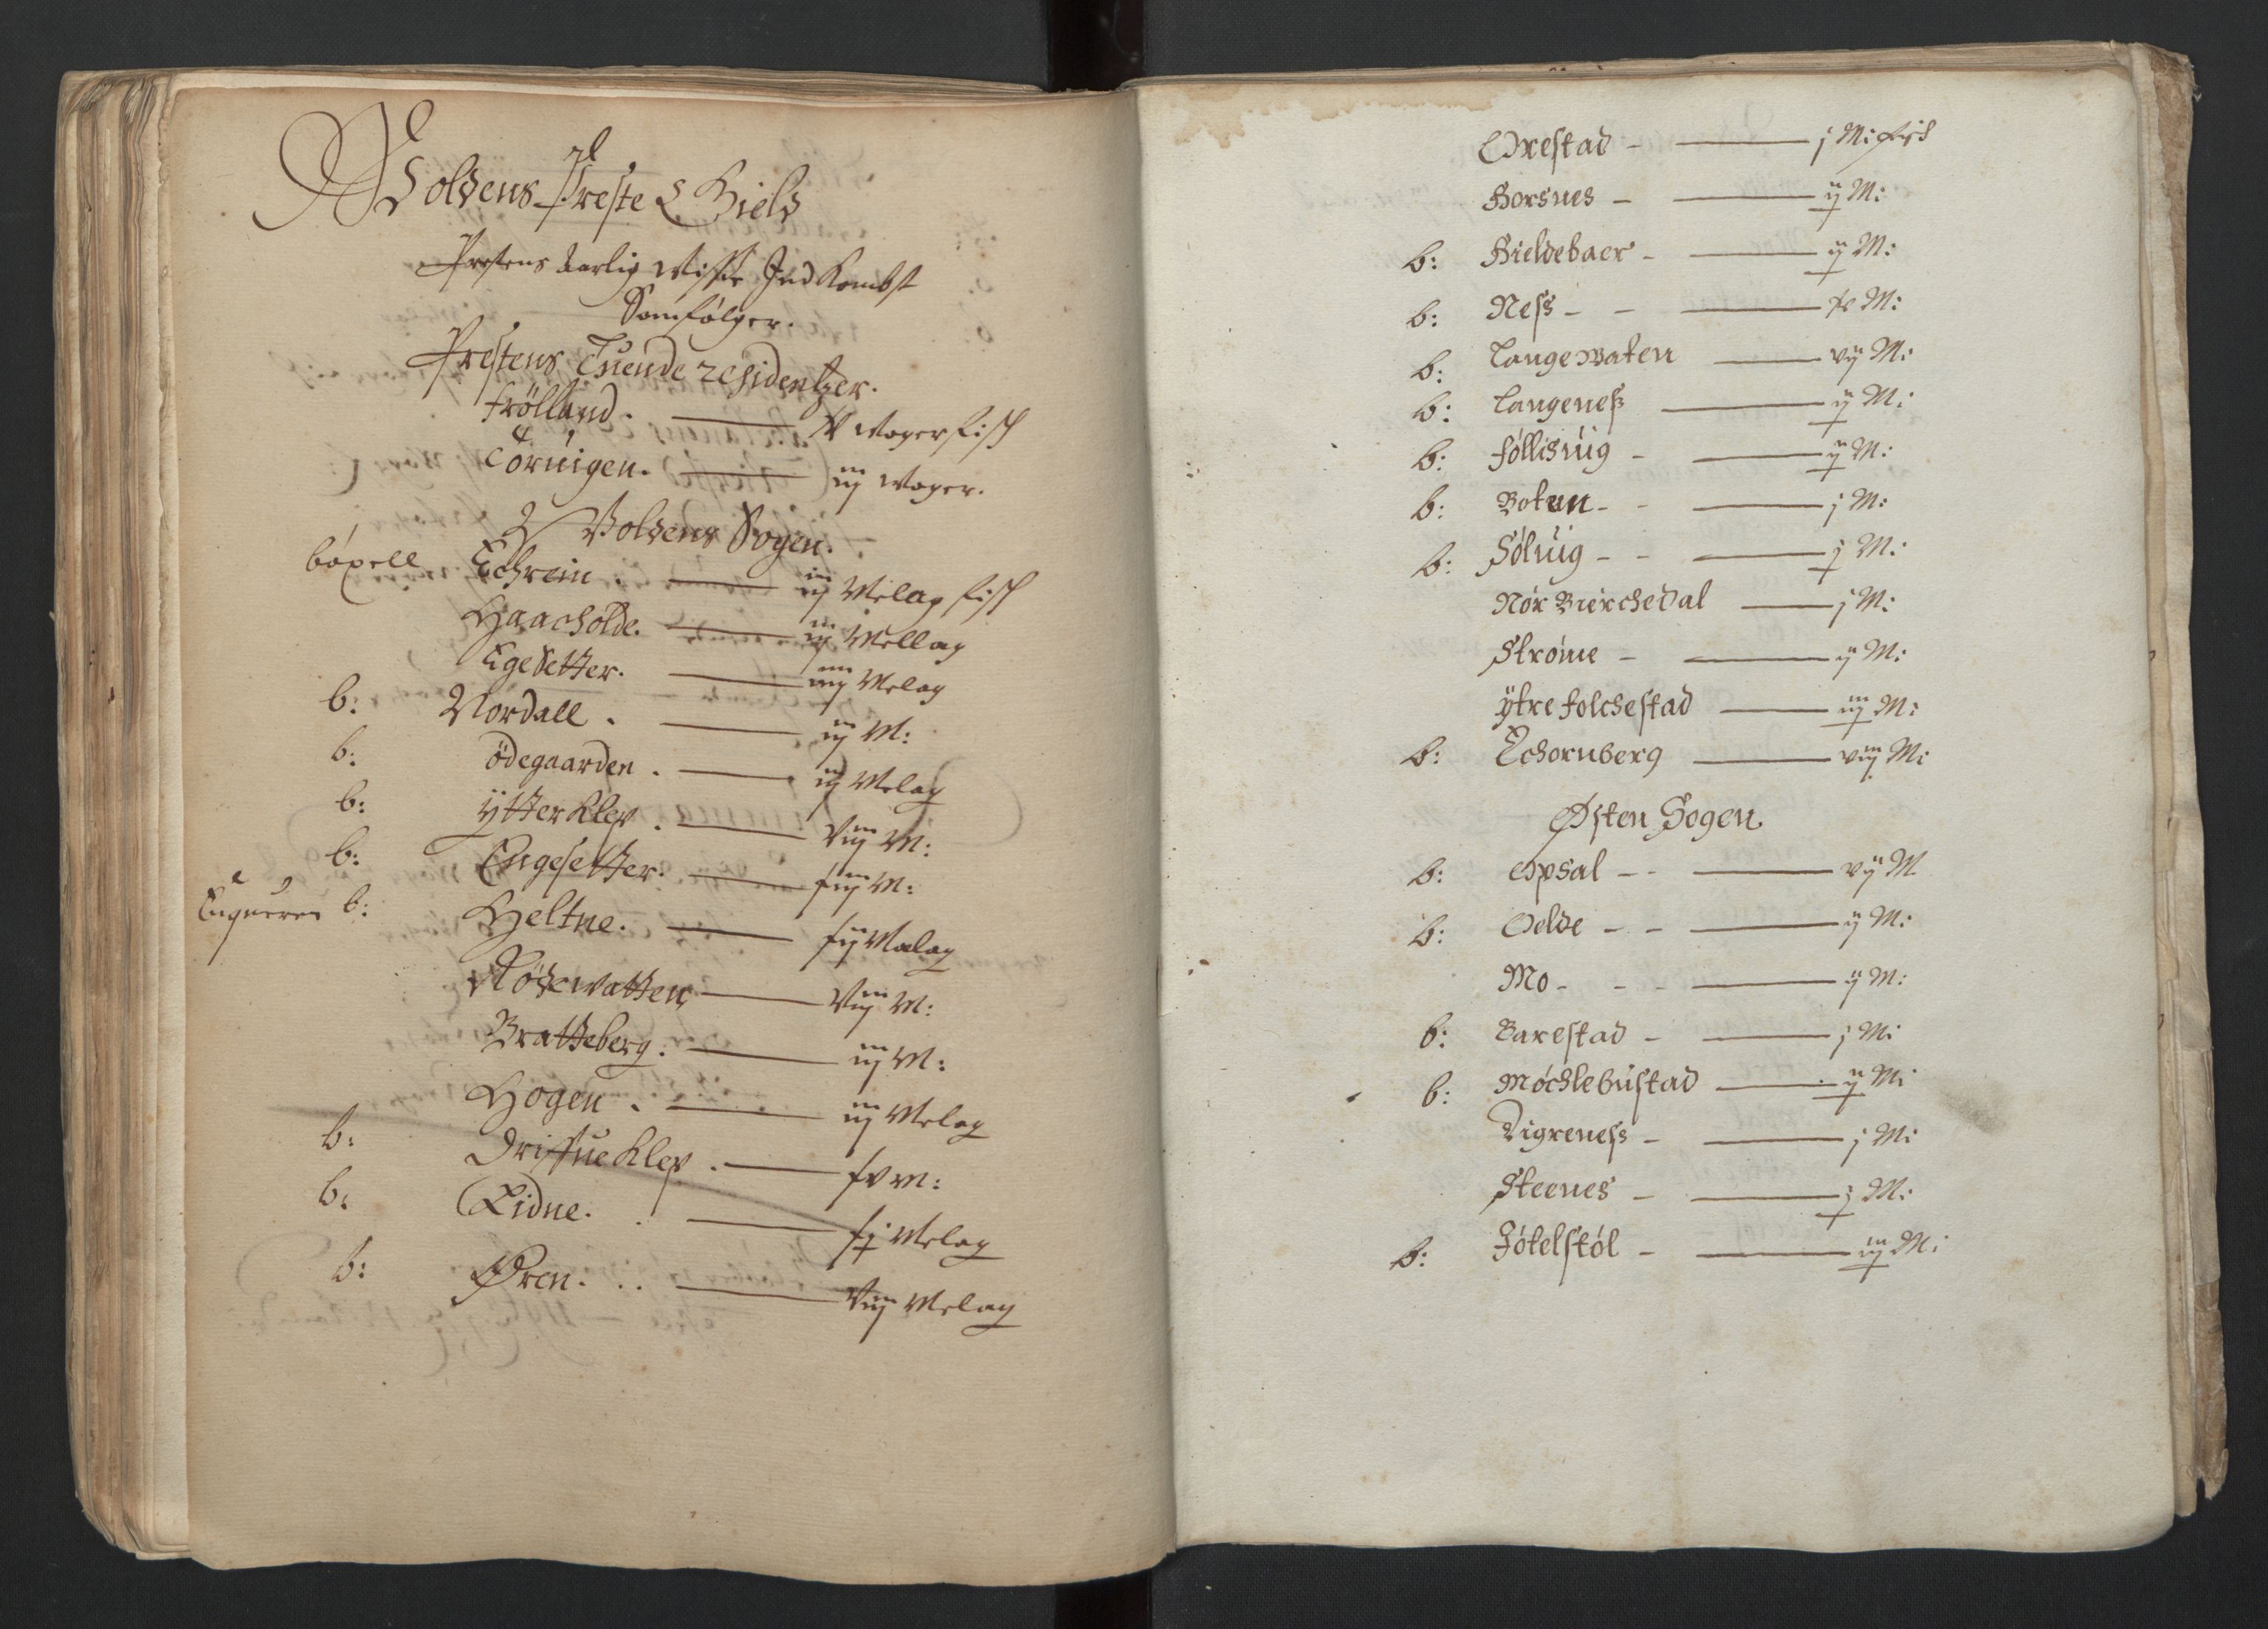 Woldens Preste Gield
Prestens Aarlig Wisse Ind Kombst
Som følger.
Prestens Tuende residentzer.
Frölland. — V Woger fisk
Törnigen. — iij Woger.
Woldens Sogen.
böxell Echrem. — iij Melag fisk
Haacholde. — iij Mellag
EgeSetter. — iiij Melag
b: Nordall. — iij M:
b: Ödegaarden. — iij Melag
b: ÿtterKlep. — Viij M:
b: Engesetter. — fiij M:
b: Heltne. — fij Melag
Rödewatten — Viij M:
Bratteberg. — iij M:
Hogen. — iij Melag
b: DriffueKlep. — fv M:
b: Eidne. — fj Melag
b: Øren. — Viij Melag
Orestad — j M: fisk
Horsnes — ij M:
b: Bieldebaer — ij M:
b: Ness — M:
b: LangeWaten — vij M:
b: Langeness — ij M:
b: Föllisuig — ij M:
b: Botun — j M:
b: Söluig — j M:
Nör Bierchedal — j M:
Ströme — ij M:
ÿtre Folchestad — iij M:
b: Echornberg — viij M:
Østen Sogen.
b: Opsal — vij M
b: Velde — ij M:
Mo — ij M:
b: Barestad — j M:
b: Möchlebustad — ij M:
Digreness — j M:
Steenes — j M:
b: Jötelstöl — iij M: